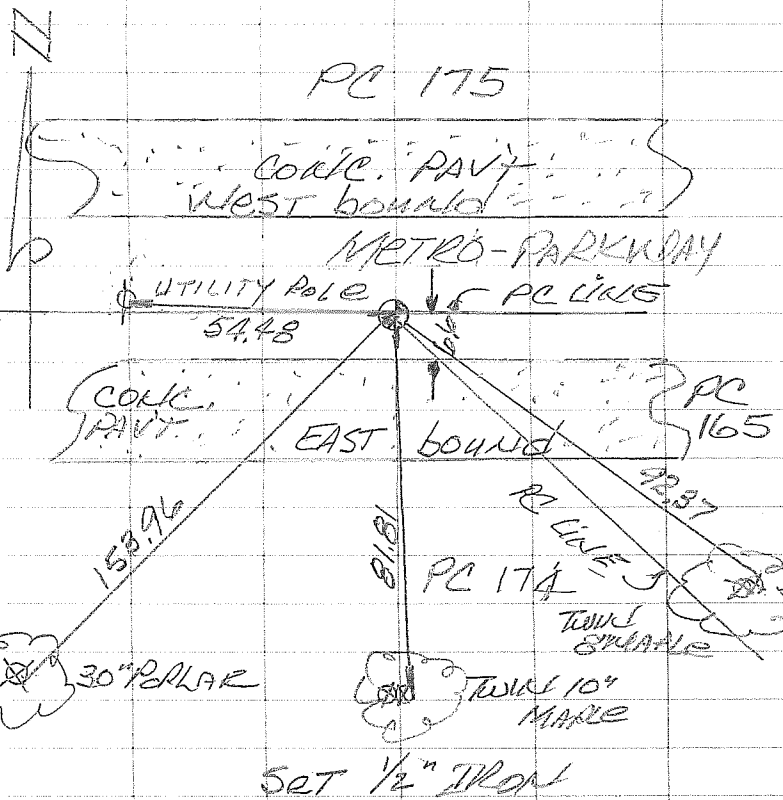 N
PC 175
CONC. PAVT
WEST bound
METRO-PARKWAY
UTILITY Pole
PC LINE
54.48
CONC.
PAVT.
EAST bound
PC
165
153.96
81.81
92.37
PC LINE
PC 174
TWIN
8" MAPLE
30" POPLAR
TWIN 10"
MAPLE
SET 1/2" IRON